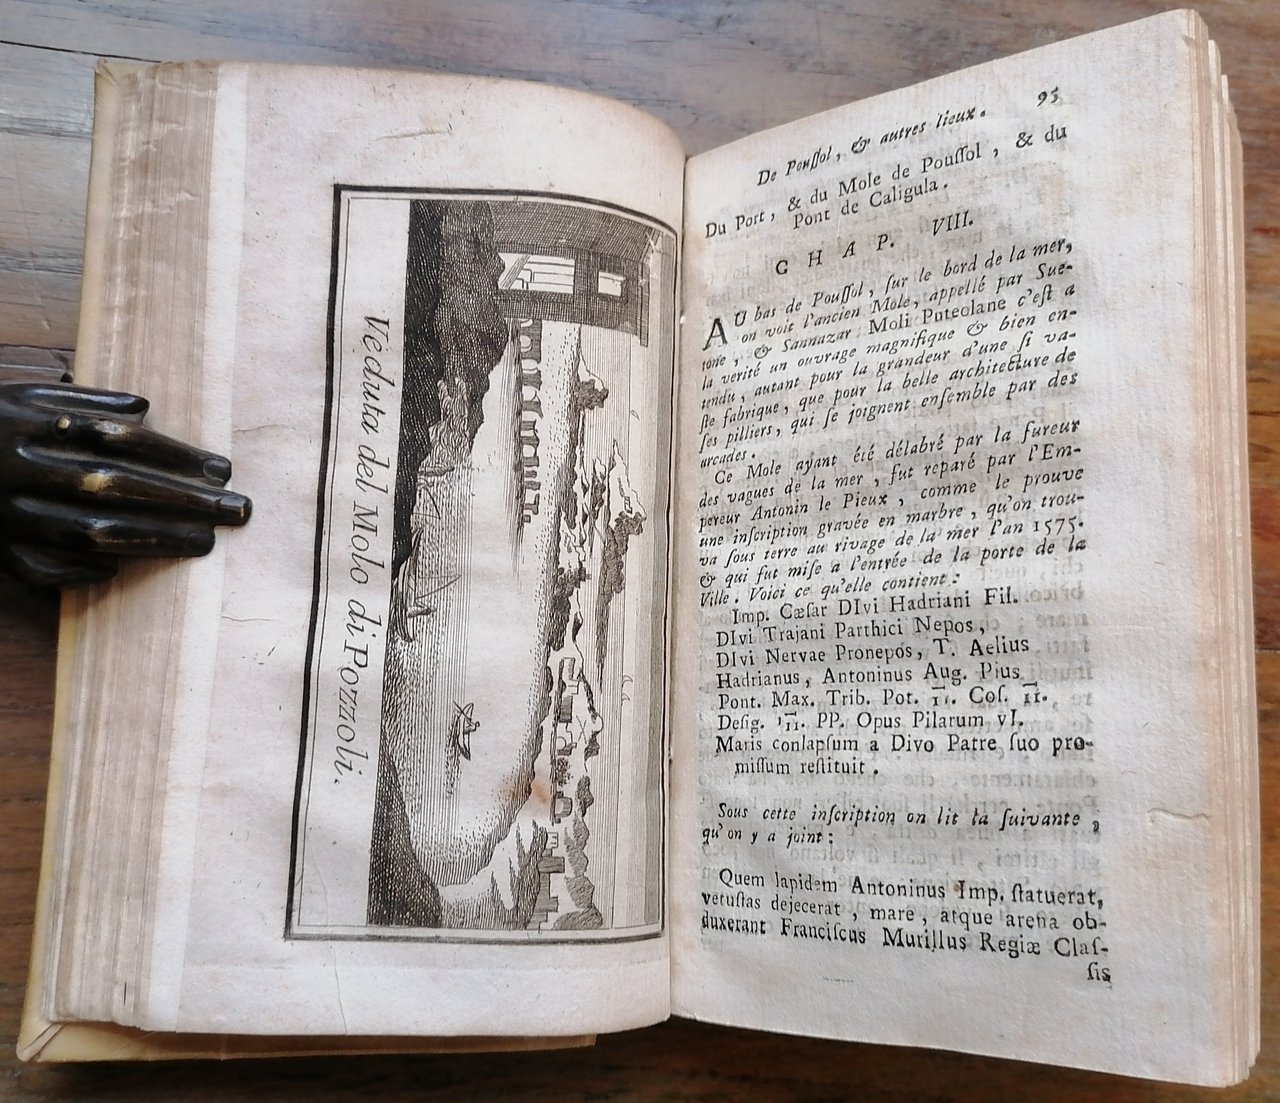 Veduta del Molo di Pozzoli.
De Pouſſol, & autres lieux. 95
Du Port, & du Mole de Pouſſol, & du
Pont de Caligula.
CHAP. VIII.
AU bas de Pouſſol, ſur le bord de la mer,
on voit l'ancien Mole, appellé par Sue-
tone, & Sannazar Moli Puteolane c'eſt a
la verité un ouvrage magnifique & bien en-
tendu, autant pour la grandeur d'une ſi va-
ſte fabrique, que pour la belle architecture de
ſes pilliers, qui ſe joignent enſemble par des
arcades.
Ce Mole ayant été délabré par la fureur
des vagues de la mer, fut reparé par l'Em-
pereur Antonin le Pieux, comme le prouve
une inſcription gravée en marbre, qu'on trou-
va ſous terre au rivage de la mer l'an 1575.
& qui fut miſe a l'entrée de la porte de la
Ville. Voici ce qu'elle contient:
Imp. Cæſar DIvi Hadriani Fil.
DIvi Trajani Parthici Nepos,
DIvi Nervae Pronepos, T. Aelius
Hadrianus, Antoninus Aug. Pius
Pont. Max. Trib. Pot. Coſ. II.
Deſig. PP. Opus Pilarum vI.
Maris conlapſum a Divo Patre ſuo pro-
miſſum reſtituit.
Sous cette inſcription on lit la ſuivante,
qu'on y a joint:
Quem lapidem Antoninus Imp. ſtatuerat,
vetuſtas dejecerat, mare, atque arena ob-
duxerant Franciſcus Murillus Regiæ Claſ-
ſis